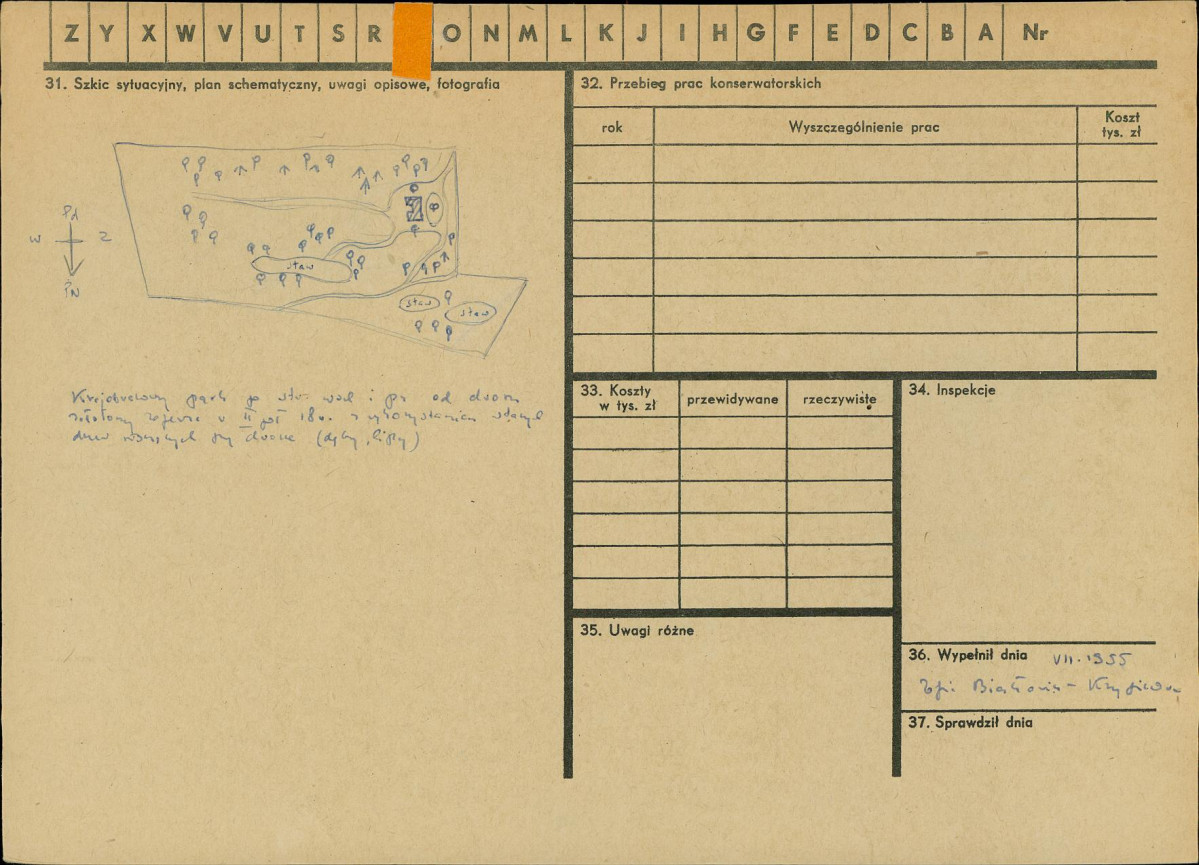 Z Y X W V U T S R O N M L K J I H G F E D C B A Nr
31. Szkic sytuacyjny, plan schematyczny, uwagi opisowe, fotografia
Pd
W Z
PN
staw
staw
staw
Krajobrazowy park po str. wsch i pn od dworu
założony zapewne w II poł 18 w. z wykorzystaniem starych
drzew rosnących przy dworze (dęby, lipy)
32. Przebieg prac konserwatorskich
rok Wyszczególnienie prac Koszt
tys. zł
33. Koszty
w tys. zł przewidywane rzeczywiste
34. Inspekcje
35. Uwagi różne
36. Wypełnił dnia VII. 1955
37. Sprawdził dnia